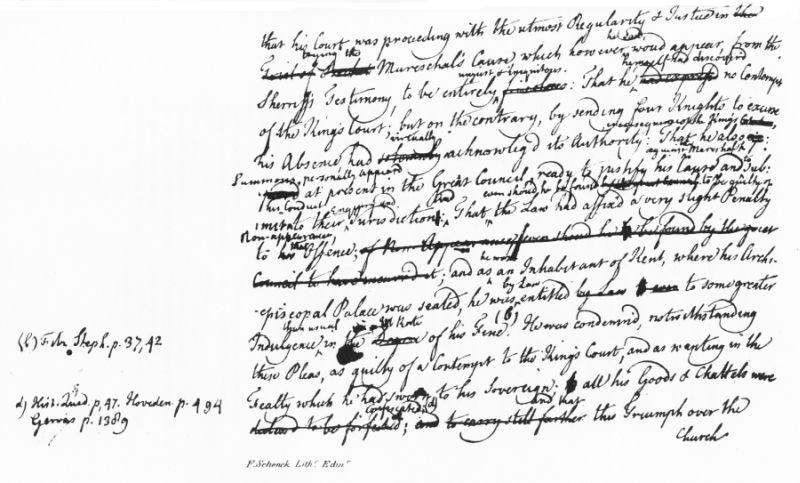 that his Court was proceeding with the utmost Regularity & Justice in the
trying the
he said,
Mareschal's Cause, which however, woud appear, from the
unjust & iniquitous
himself had discovered
Sherriff's Testimony, to be entirely : That he no Contempt
of the King's Court; but on the contrary, by sending four Knights to excuse
virtually
in consequence of the King's
his Absence had acknowleg'd its Authority: That he also
Summons, personally appeard
against Mareshall
at present in the Great Council, ready to justify his Cause and sub:
this Conduct
enquiry and
And
even shoud he be found to be guilty of
-mit to their Jurisdiction: That the Law had affixd a very slight Penalty
Non-appearance
that
to his Offence; of Non-Appearance even shoud he be found by the great
he was
Council to have incurred it; and as an Inhabitant of Kent, where his Arch-
by Law
-episcopal Palace was seated, he was entitled by Law to some greater
than usual
Rate
(b)
Indulgence in the of his Fine. He was condemnd, notwithstanding
these Pleas, as guilty of a Contempt to the King's Court, and as wanting in the
Fealty which he had sworn to his Sovereign: all his Goods & Chattels were
confiscated;
and that
to be forfeited; and to carry still farther this Triumph over the
Church
(b) Fitz. Steph. p. 37, 42
Hist. Quad. p. 47. Hoveden p. 494
Gervas p. 1389
F. Schenck Lithr. Edinr.